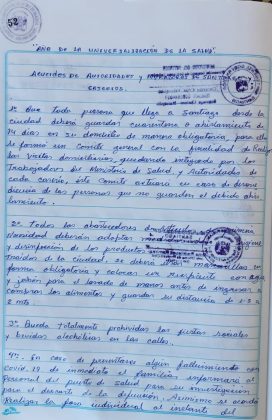 52
"AÑO DE LA UNIVERSALIZACIÓN DE LA SALUD"
Acuerdos de Autoridades y
1º Que Toda persona que llega a Santiago desde la
ciudad deberá guardar cuarentena o aislamiento de
14 días en su domicilio de manera obligatoria, para ello
se formó un Comité general con la finalidad de
las visitas domiciliarias, quedando integrada por los
Trabajadores del Ministerio de Salud y Autoridades de
cada caserío, Este Comité actuará en caso de
de las personas que no guarden el debido
2º Todos los abastecedores
deberán adoptar
y desinfección de los productos
traídos de la ciudad. Se deberá usar mascarillas en
forma obligatoria y colocar un Recipiente con agua
y jabón para el lavado de manos antes de ingresar a
comprar los alimentos y guardar su distancia de 1.5 a
2 mts.
3º Queda Totalmente prohibidas las fiestas sociales
y bebidas alcohólicas en las calles.
4º En caso de presentarse algún fallecimiento con
covid.19 de inmediato el familiar informará al
Personal del puesto de salud para su investigación
para el descarte de la defunción. Asimismo se acordó
Realizar la fosa individual al instante del